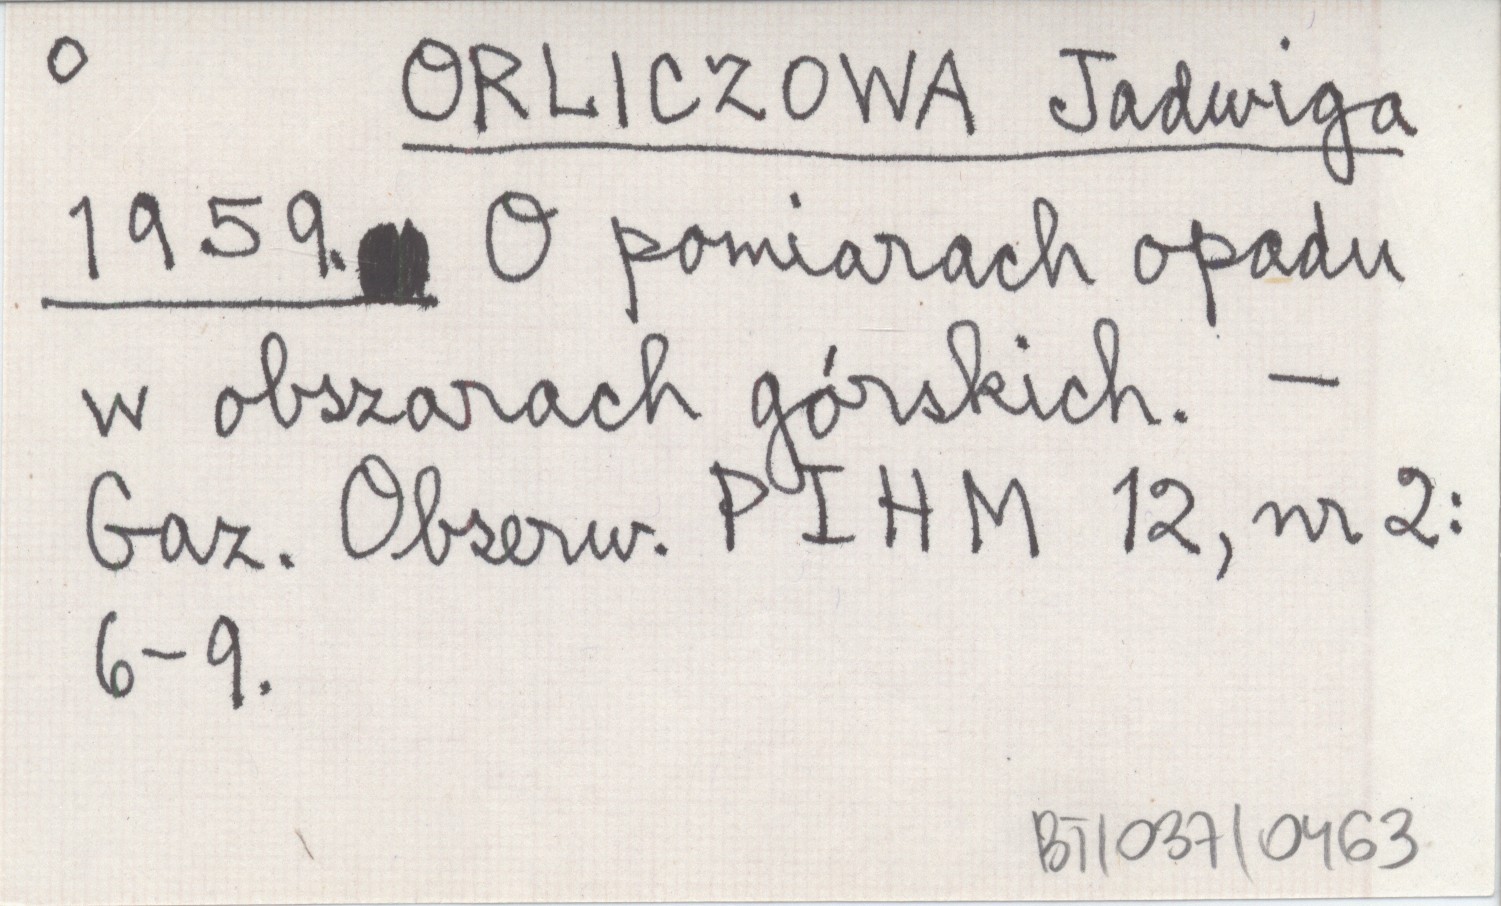 O ORLICZOWA Jadwiga
1959. O pomiarach opadu
w obszarach górskich. —
Gaz. Obserw. PIHM 12, nr 2:
6-9.
BT/037/0463